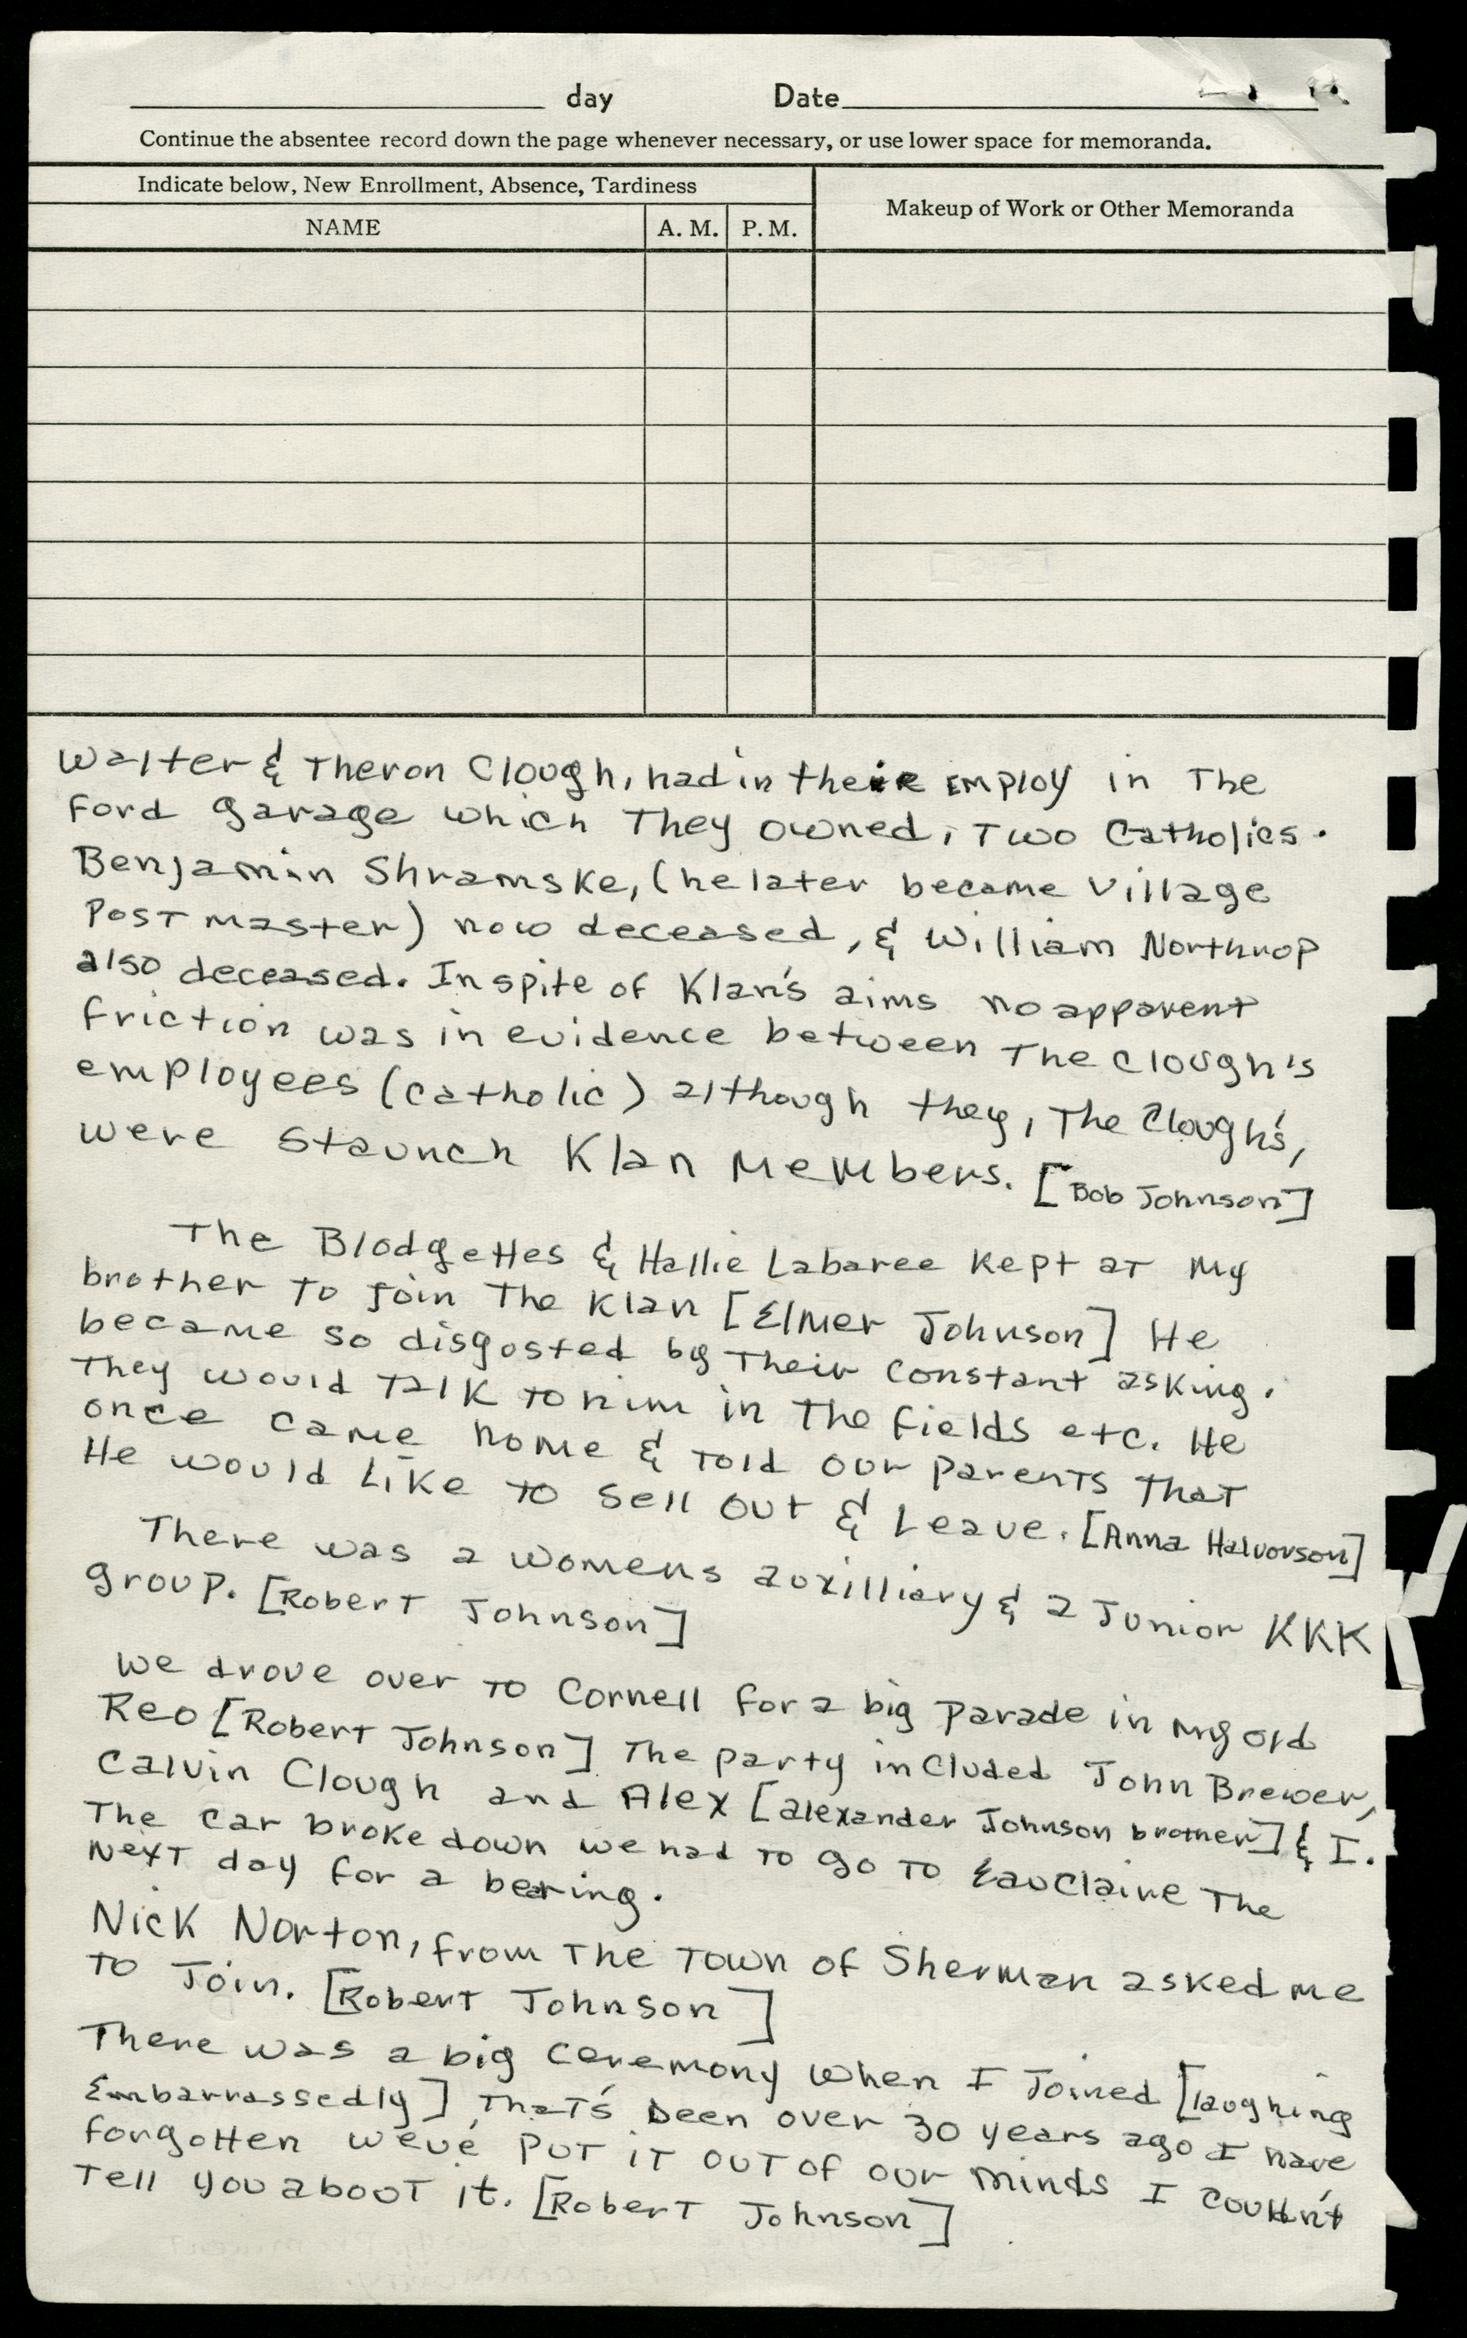 day Date
Continue the absentee record down the page whenever necessary, or use lower space for memoranda.
Indicate below, New Enrollment, Absence, Tardiness
Makeup of Work or Other Memoranda
NAME A. M. P. M.
Walter & Theron Clough, had in their employ in The
Ford garage which They owned, Two Catholics.
Benjamin Shramske, (he later became Village
Post master) now deceased, & William Northrop
also deceased. In spite of Klan's aims no apparent
friction was in evidence between The Clough's
employees (catholic) although they, The Clough's,
were staunch Klan Members. [Bob Johnson]
The Blodgettes & Hallie Labaree kept at my
brother To join The Klan [Elmer Johnson] He
became so disgosted by Their constant asking.
They would Talk To him in The fields etc. He
once came home & Told our parents That
He would Like to sell out & Leave. [Anna Halvorson]
There was a womens auxilliary & a Junior KKK
group. [Robert Johnson]
We drove over To Cornell for a big parade in my old
Reo [Robert Johnson] The party included John Brewer,
Calvin Clough and Alex [alexander Johnson brother] & I.
The car broke down we had To go To Eau Claire The
Next day for a bearing.
Nick Norton, from The Town of Sherman asked me
To Join. [Robert Johnson]
There was a big ceremony when I Joined [laughing
Embarrassedly] That's been over 30 years ago I have
forgotten we've put it out of our minds I couldn't
Tell you about it. [Robert Johnson]